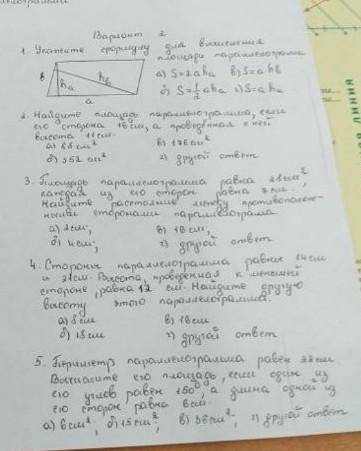 Вариант 2
1. Укажите формулу для вычисления
площади параллелограмма
в hа hв а
а) S=2ahа в) S=ahв
б) S=1/2 ahа г) S=ahа
2. Найдите площадь параллелограмма, если
его сторона 16 см, а проведённая к ней
высота 11 см.
а) 88 см² в) 176 см²
б) 352 см² г) другой ответ
3. Площадь параллелограмма равна 28 см²
каждая из его сторон равна 7 см.
Найдите расстояние между противополож-
ными сторонами параллелограмма.
а) 2 см; в)
б) 4 см; г) другой ответ
4. Стороны параллелограмма равны 14 см
и 21 см. Высота, проведённая к меньшей
стороне, равна 12 см. Найдите другую
высоту этого параллелограмма.
а) 8 см в) 16 см
б) 18 см г) другой ответ
5. Периметр параллелограмма равен 22 см
Вычислите его площадь, если один из
его углов равен 150°, а длина одной из
его сторон равна 6 см.
а) 6 см²; б) 15 см²; в) 36 см²; г) другой ответ
линия